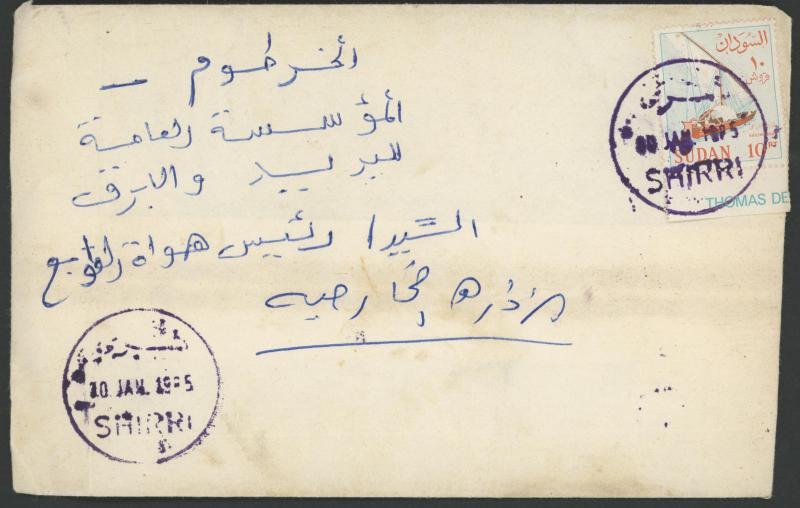 الخرطوم –
المؤسسة العامة
للبريد والبرق
السيد / رئيس هواة الطوابع
السودان
١٠
قروش
SUDAN 10
THOMAS DE
JAN. 1985
SHIRRI
شري
10 JAN. 1985
SHIRRI